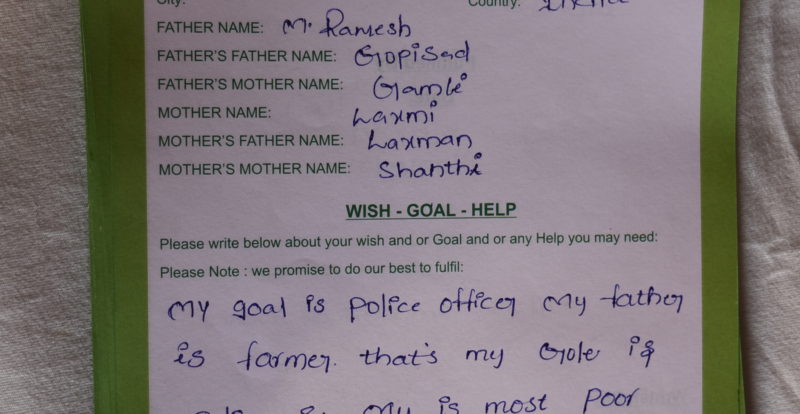 City: Country:
FATHER NAME: M. Ramesh
FATHER'S FATHER NAME: Gopisad
FATHER'S MOTHER NAME: Gambi
MOTHER NAME: Laxmi
MOTHER'S FATHER NAME: Laxman
MOTHER'S MOTHER NAME: Shanthi
WISH - GOAL - HELP
Please write below about your wish and or Goal and or any Help you may need:
Please Note : we promise to do our best to fulfil:
My goal is police officer My father
is farmer. that's my Gole is
My is most poor